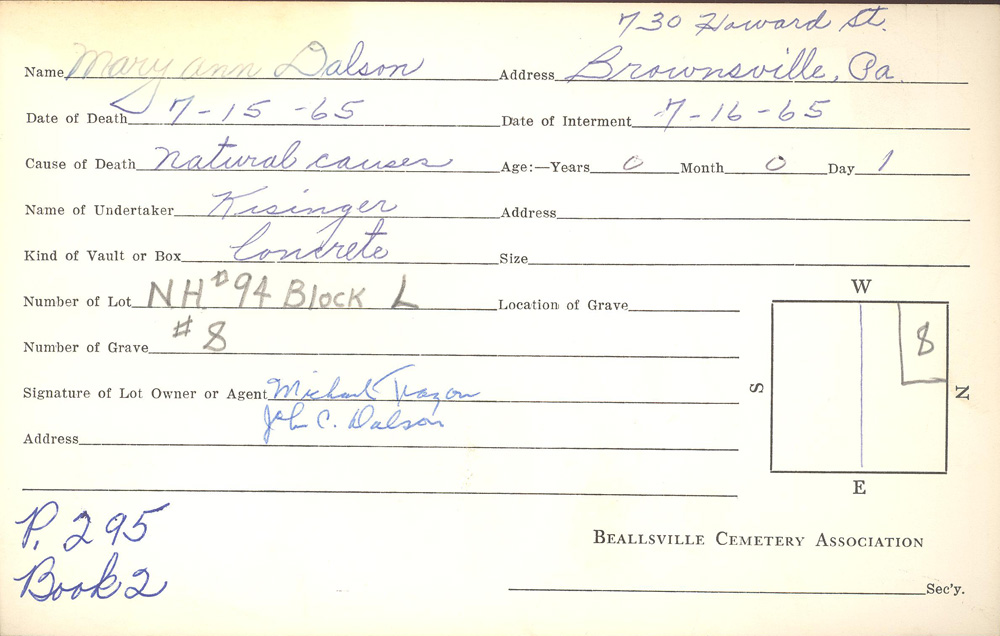 730 Howard St.
Name Mary ann Dalson Address Brownsville, Pa.
Date of Death 7-15-65 Date of Interment 7-16-65
Cause of Death natural causes Age:—Years 0 Month 0 Day 1
Name of Undertaker Kisinger Address
Kind of Vault or Box Concrete Size
Number of Lot NH #94 Block L Location of Grave
Number of Grave #8
Signature of Lot Owner or Agent Michael
John C. Dalson
Address
W
8
S
N
E
P. 295
Book 2
BEALLSVILLE CEMETERY ASSOCIATION
Sec'y.